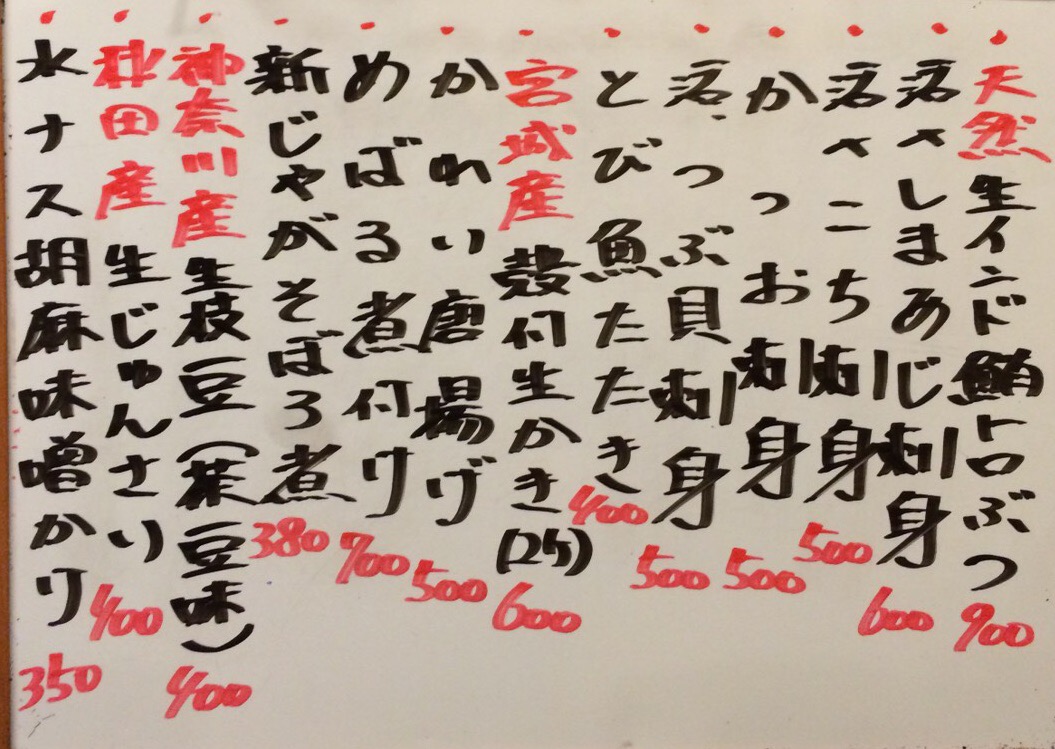 天然 生インド鮪トロぶつ 900
活さしまあじ刺身 600
活さこち刺身 500
かつお刺身 500
活つぶ貝刺身 500
とび魚たたき 400
宮城産 殻付生かき(2ケ) 600
かれい唐揚げ 500
めばる煮付け 700
新じゃがそぼろ煮 380
神奈川産 生枝豆(茶豆味) 400
秋田産 生じゅんさい 400
水ナス胡麻味噌かけ 350